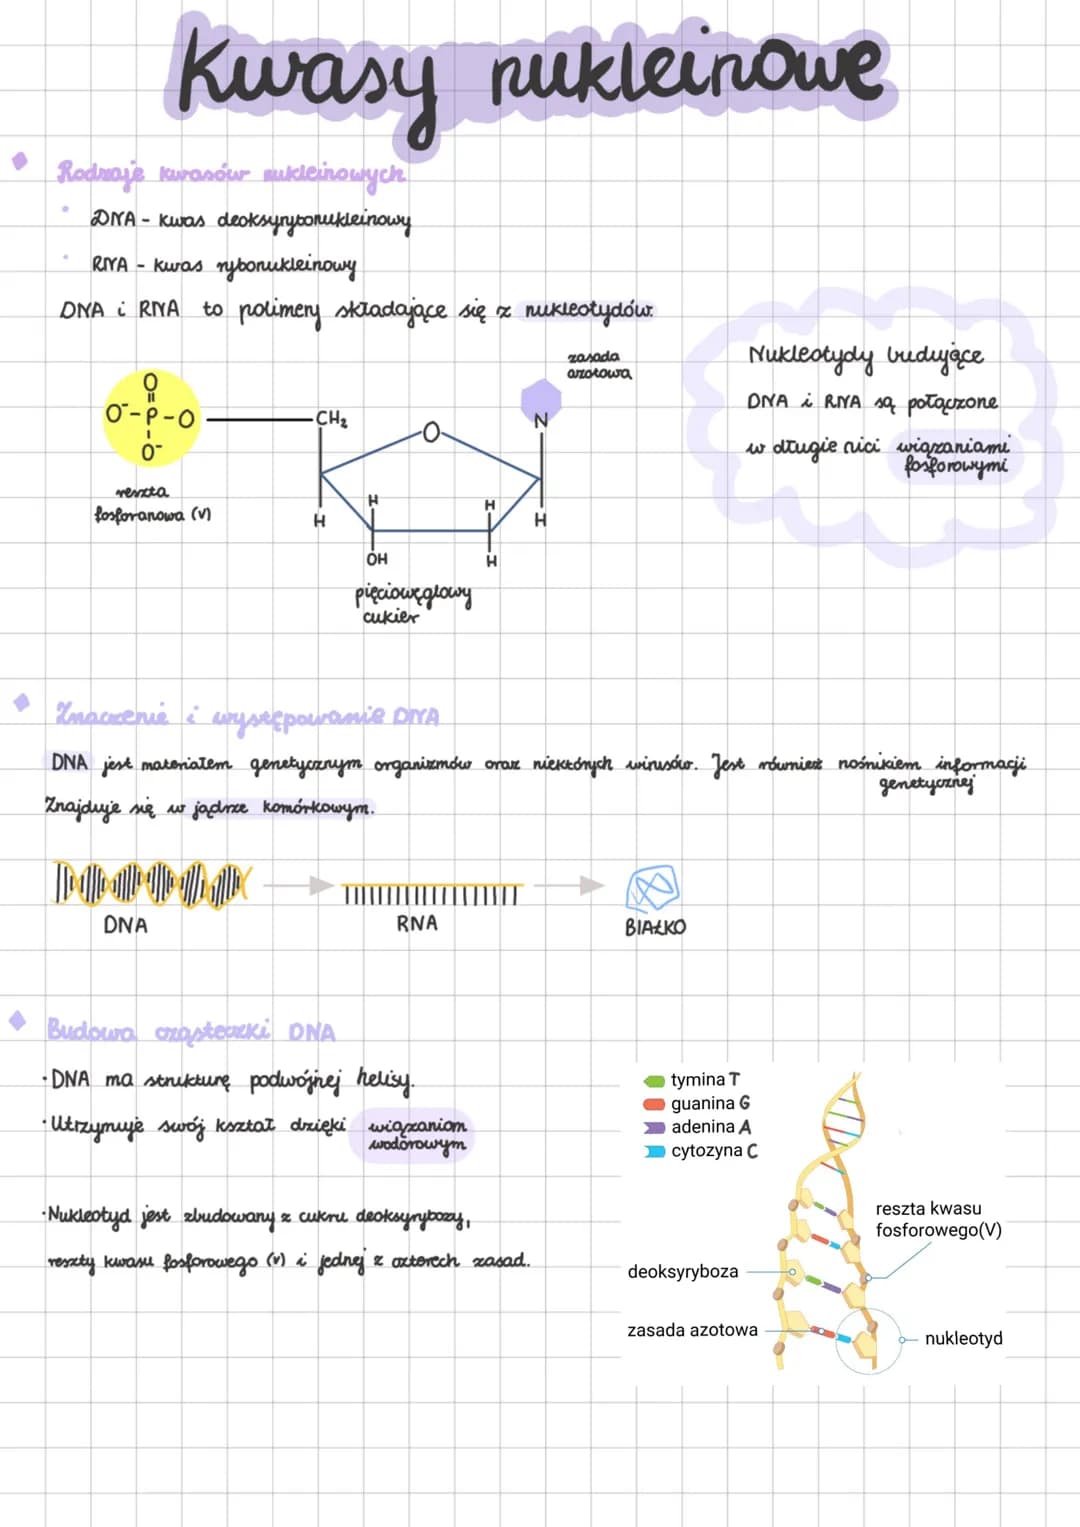 Kwasy nukleinowe
Rodzaje kwasów nukleinowych
DNA - kwas deoksyrybonukleinowy
RNA - kwas rybonukleinowy
DNA i RNA to polimery składające się z nukleotydów.
zasada
azotowa
Nukleotydy budujące
DNA i RNA są połączone
w długie nici wiązaniami
fosforowymi
O
O⁻-P-O
O⁻
CH₂
O
N
H
H
H
H
OH
H
reszta
fosforanowa (V)
pięciowęglowy
cukier
Znaczenie i występowanie DNA
DNA jest materiałem genetycznym organizmów oraz niektórych wirusów. Jest również nośnikiem informacji
genetycznej
Znajduje się w jądrze komórkowym.
DNA
RNA
BIAŁKO
Budowa cząsteczki DNA
·DNA ma strukturę podwójnej helisy.
·Utrzymuje swój kształt dzięki wiązaniom
wodorowym
·Nukleotyd jest zbudowany z cukru deoksyrybozy,
reszty kwasu fosforowego (V) i jednej z czterech zasad.
tymina T
guanina G
adenina A
cytozyna C
reszta kwasu
fosforowego(V)
deoksyryboza
zasada azotowa
nukleotyd